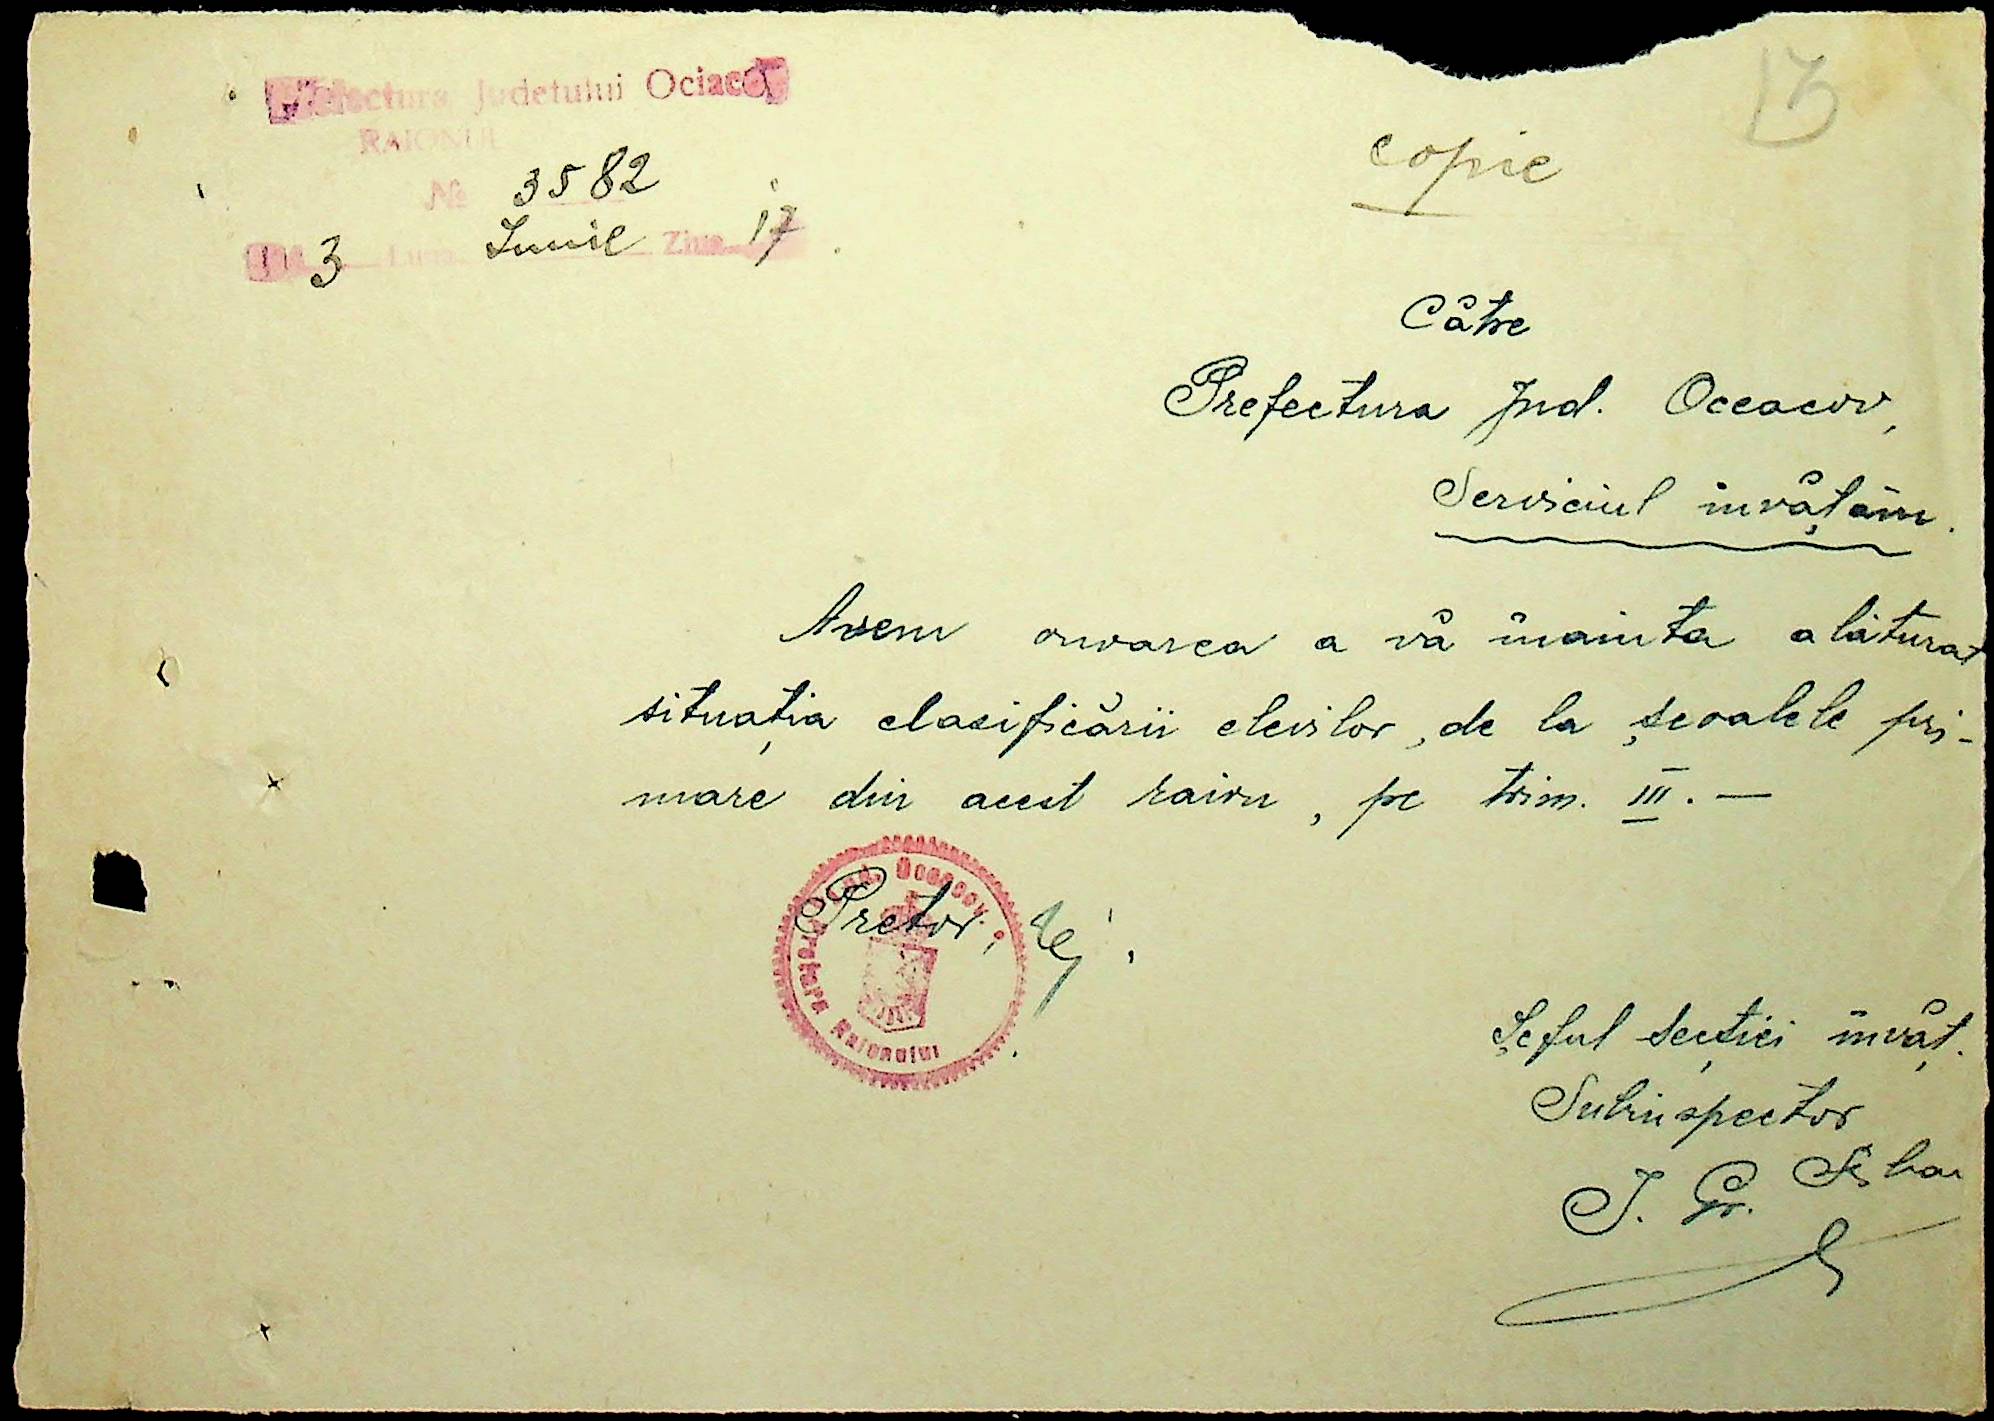 Prefectura Judetului Ociacov
RAIONUL
№ 3582
1943 Luna Iunie Ziua 17
13
copie
Către
Prefectura Jud. Oceacov,
Serviciul învățăm.
Avem onoarea a vă înainta alăturat
situația clasificării elevilor, de la școalele pri-
mare din acest raion, pe trim. III. —
Jud. Oceacov
Pretura Raionului
Pretor,
Șeful secției învăț.
Subinspector
I. Gr.